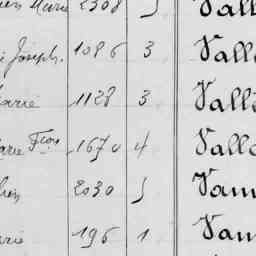 Marie 2308 5 Vall
Joseph. 1086 3 Vall
Marie 1128 3 Vall
Marie Fçois 1670 4 Vall
2030 5 Vam
196 1 Vam